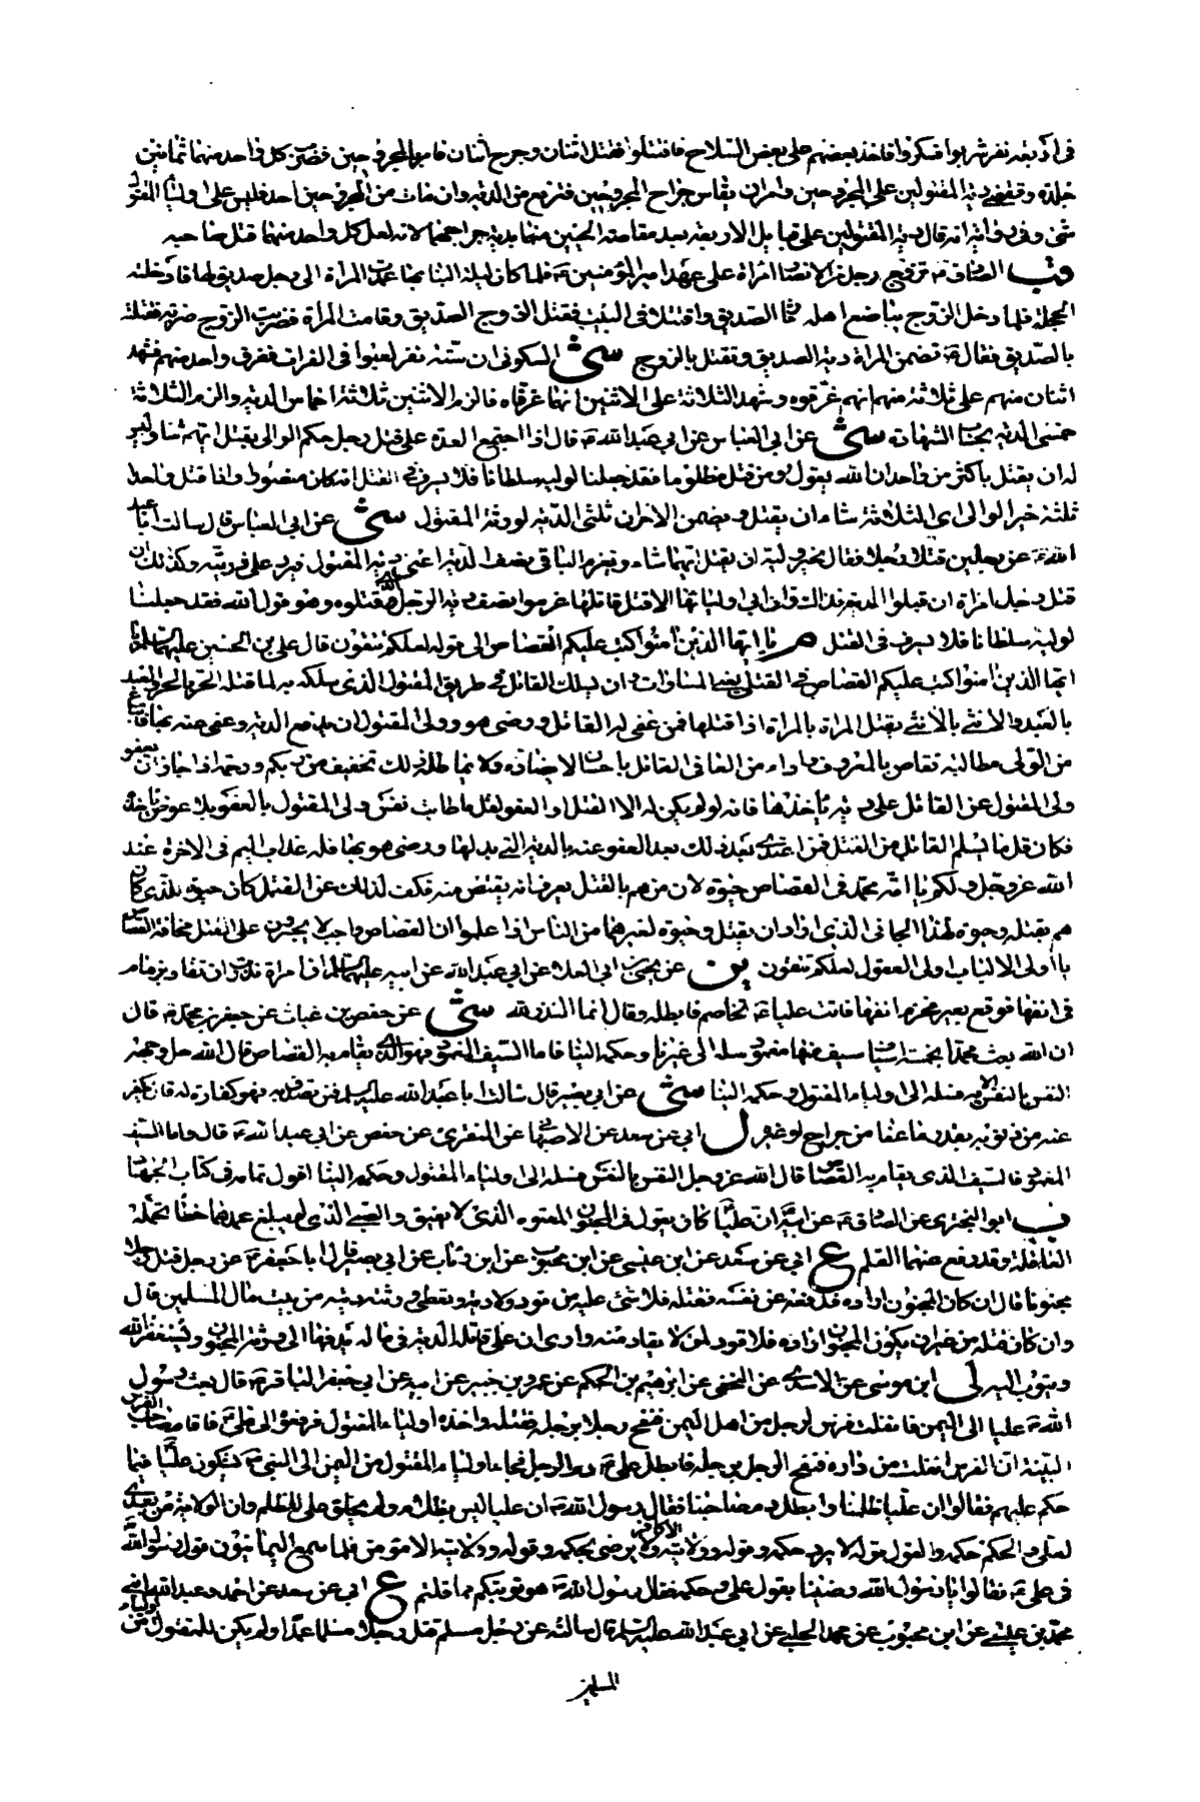 فى اربعة نفر شربوا فسكروا فاخذ بعضهم على بعض السلاح فاقتتلوا فقتل اثنان وجرح اثنان فامر بالمجروحين فضرب كل واحد منهما ثمانين
جلدة وقضى دية المقتولين على المجروحين وامر ان يقاس جراح المجروحين فترفع من الدية وان مات من المجروحين احد فليس على اولياء المقتول
شئ وفى رواية انه قال دية المقتولين على قبايل الاربعة بعد مقاصة الحيين منهما بدية جراحهما لانه لعل كل واحد منهما قتل صاحبه
قب الصادق ع تزوج رجل من الانصار امراة على عهد امير المؤمنين ع فلما كان ليلة البنا بها عمدت المراة الى رجل صديق لها فادخلته
الحجلة فلما دخل الزوج يباضع اهله ثار الصديق واقتتلا فى البيت فقتل الزوج الصديق وقامت المراة فضربت الزوج ضربة فقتلته
بالصديق فقال ع تضمن المراة دية الصديق وتقتل بالزوج شى السكونى ان ستة نفر لعبوا فى الفرات فغرق واحد منهم فشهد
اثنان منهم على ثلاثة منهم انهم غرقوه وشهد الثلاثة على الاثنين انهما غرقاه فالزم الاثنين ثلاثة اخماس الدية والزم الثلاثة
خمسى الدية بحساب الشهادة شى عن ابى العباس عن ابى عبد الله ع قال اذا اجتمع العدة على قتل رجل حكم الوالى بقتل ايهم شاء وليس
له ان يقتل باكثر من واحد ان الله يقول ومن قتل مظلوما فقد جعلنا لوليه سلطانا فلا يسرف فى القتل انه كان منصورا واذا قتل واحدا
ثلثة خير الوالى اى الثلاثة شاء ان يقتل ويضمن الاخران ثلثى الدية لورثة المقتول شى عن ابى العباس قال سالت ابا عبد
الله ع عن رجلين قتلا رجلا فقال يخير وليه ان يقتل ايهما شاء ويغرم الباقى نصف الدية اعنى دية المقتول فيرد على ذريته وكذلك ان
قتل رجل امراة ان قبلوا دية المراة فذاك وان ابى اولياؤها الا قتل قاتلها غرموا نصف دية الرجل وقتلوه وهو قول الله فقد جعلنا
لوليه سلطانا فلا يسرف فى القتل م يا ايها الذين امنوا كتب عليكم القصاص الى قوله لعلكم تتقون قال على بن الحسين عليهما السلام يا
ايها الذين امنوا كتب عليكم القصاص فى القتلى يعنى المساوات وان يسلك القاتل فى طريق المقتول الذى سلكه به لما قتله الحر بالحر والعبد
بالعبد والانثى بالانثى يقتل المراة بالمراة اذا قتلها فمن عفى له القاتل ورضى هو وولى المقتول ان يدفع الدية وعفى عنه بها فاتباع
من الولى مطالبة تقاص بالمعروف واداء من العافى القاتل باحسان لا يضاره ولا يماطله ذلك تخفيف من ربكم ورحمة اذا جاز ان يعفو
ولى المقتول عن القاتل على دية ياخذها فانه لو لم يكن له الا القتل او العفو لقل ما طابت نفس ولى المقتول بالعفو بلا عوض ياخذه
فكان قل ما يسلم القاتل من القتل فمن اعتدى بعد ذلك بعد العفو عنه بالدية التى بذلها ورضى هو بها فله عذاب اليم فى الاخرة عند
الله عز وجل ولكم يا امة محمد فى القصاص حيوة لان من هم بالقتل يعرف انه يقتص منه فكف لذلك عن القتل كان حيوة للذى كان
هم بقتله وحيوة لهذا الجانى الذى اراد ان يقتل وحيوة لغيرهما من الناس اذا علموا ان القصاص واجب لا يجرؤن على القتل مخافة القصاص
يا اولى الالباب اولى العقول لعلكم تتقون ين عن يحيى بن ابى العلا عن ابى عبد الله عن ابيه عليهما السلام ان امراة نذرت ان تقاد بزمام
فى انفها فوقع بعير فخرم انفها فاتت عليا ع تخاصم فابطله وقال انما النذر لله شى عن حفص بن غياث عن جعفر بن محمد ع قال
ان الله بعث محمدا بخمسة اسياف سيف منها مغمود سله الى غيرنا وحكمه الينا فاما السيف المغمود فهو الذى يقام به القصاص قال الله جل وجهه
النفس بالنفس الاية فسله الى اولياء المقتول وحكمه الينا شى عن ابى بصير قال سالت ابا عبد الله عليه السلم فمن تصدق به فهو كفارة له قال يكفر
عنه من ذنوبه بقدر ما عفا من جراح او غيره ل ابى عن سعد عن الاصبهانى عن المنقرى عن حفص عن ابى عبد الله ع قال واما السيف
المغمود فالسيف الذى يقام به القصاص قال الله عز وجل النفس بالنفس فسله الى اولياء المقتول وحكمه الينا اقول تمامه فى كتاب الجهاد
ب ابو البخترى عن الصادق ع عن ابيه ان عليا كان يقول فى المجنون المعتوه الذى لا يفيق والصبى الذى لم يبلغ عمدهما خطا تحمله
العاقلة وقد رفع عنهما القلم ع ابى عن سعد عن ابن عيسى عن ابن محبوب عن ابن رئاب عن ابى بصير قال ابا جعفر ع عن رجل قتل رجلا
مجنونا قال ان كان المجنون اراده فدفعه عن نفسه فقتله فلا شئ عليه من قود ولا دية ويعطى ورثته ديته من بيت مال المسلمين قال
وان كان قتله من غير ان يكون المجنون اراده فلا قود لمن لا يقاد منه وارى ان على قاتله الدية فى ماله يدفعها الى ورثة المجنون ويستغفر الله
ويتوب اليه لى ابن موسى عن الاسدى عن النخعى عن ابراهيم بن الحكم عن عمرو بن جبير عن ابيه عن ابى جعفر الباقر ع قال بعث رسول
الله ص عليا الى اليمن فانفلت فرس لرجل من اهل اليمن فنفح رجلا برجله فقتله واخذه اولياء المقتول فرفعوه الى على ع فاقام صاحب الفرس
البينة ان الفرس انفلت من داره فنفح الرجل برجله فابطل على ع دم الرجل فجاء اولياء المقتول من اليمن الى النبى ص يشكون عليا فيما
حكم عليهم فقالوا ان عليا ظلمنا وابطل دم صاحبنا فقال رسول الله ص ان عليا ليس بظلام ولم يخلق على للظلم وان الولاية من بعدى
لعلى والحكم حكمه والقول قوله لا يرد حكمه وقوله وولايته الا كافر ولا يرضى بحكمه وقوله وولايته الا مؤمن فلما سمع اليمانيون قول رسول الله
فى على ع فقالوا يا رسول الله رضينا بقول على وحكمه فقال رسول الله ص هو توبتكم مما قلتم ع ابى عن سعد عن احمد وعبد الله ابنى
محمد بن عيسى عن ابن محبوب عن محمد الحلبى عن ابى عبد الله عليه السلم قال سالته عن رجل مسلم قتل رجلا مسلما عمدا ولم يكن للمقتول اولياء من
المسلمين